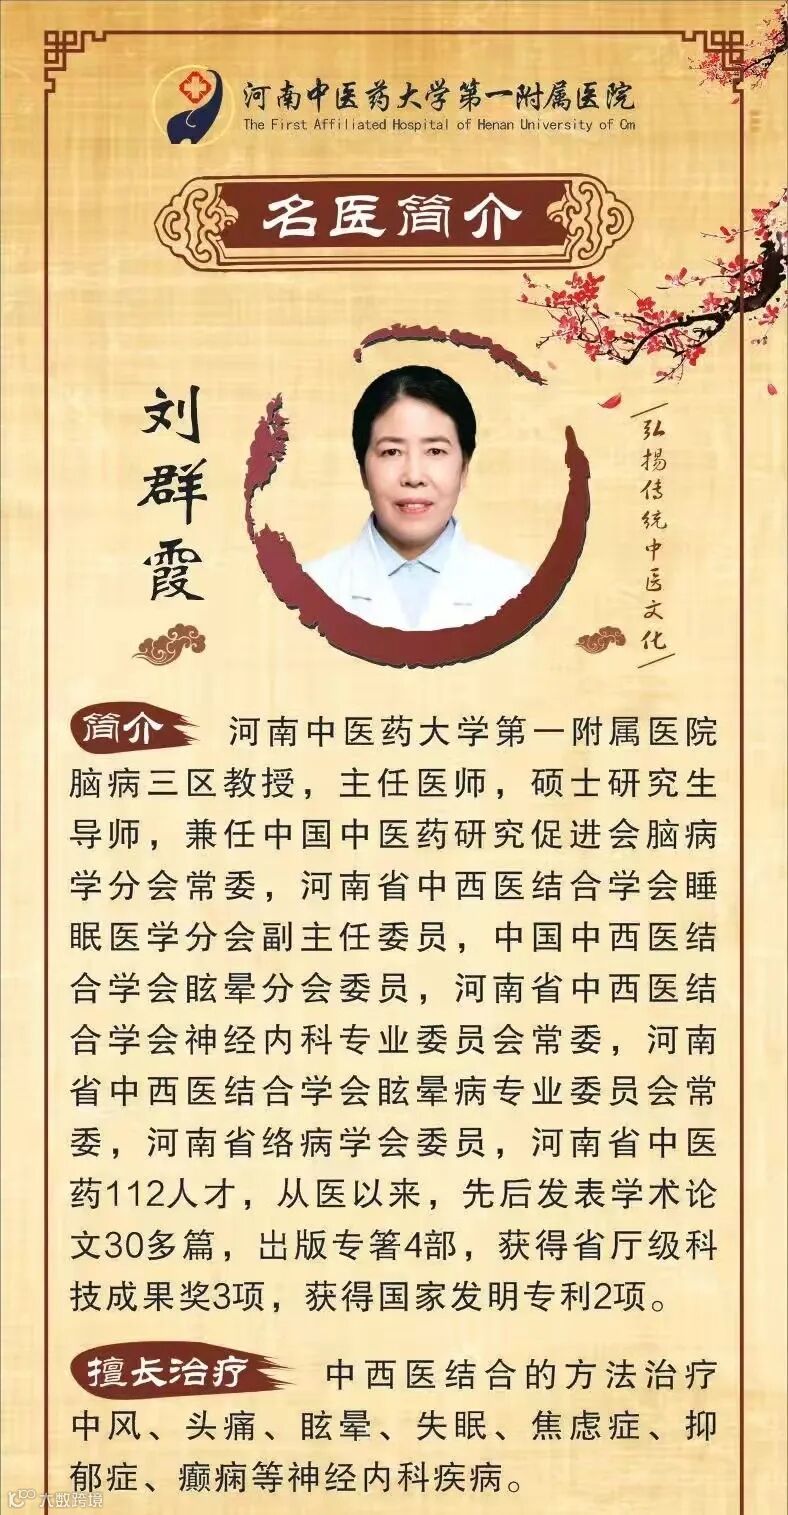 河南中医药大学第一附属医院
The First Affiliated Hospital of Henan University of Cm
名医简介
刘群霞
弘揚传统中医文化
简介 河南中医药大学第一附属医院
脑病三区教授，主任医师，硕士研究生
导师，兼任中国中医药研究促进会脑病
学分会常委，河南省中西医结合学会睡
眠医学分会副主任委员，中国中西医结
合学会眩晕分会委员，河南省中西医结
合学会神经内科专业委员会常委，河南
省中西医结合学会眩晕病专业委员会常
委，河南省络病学会委员，河南省中医
药112人才，从医以来，先后发表学术论
文30多篇，出版专箸4部，获得省厅级科
技成果奖3项，获得国家发明专利2项。
擅长治疗 中西医结合的方法治疗
中风、头痛、眩晕、失眠、焦虑症、抑
郁症、癫痫等神经内科疾病。
大数跨境